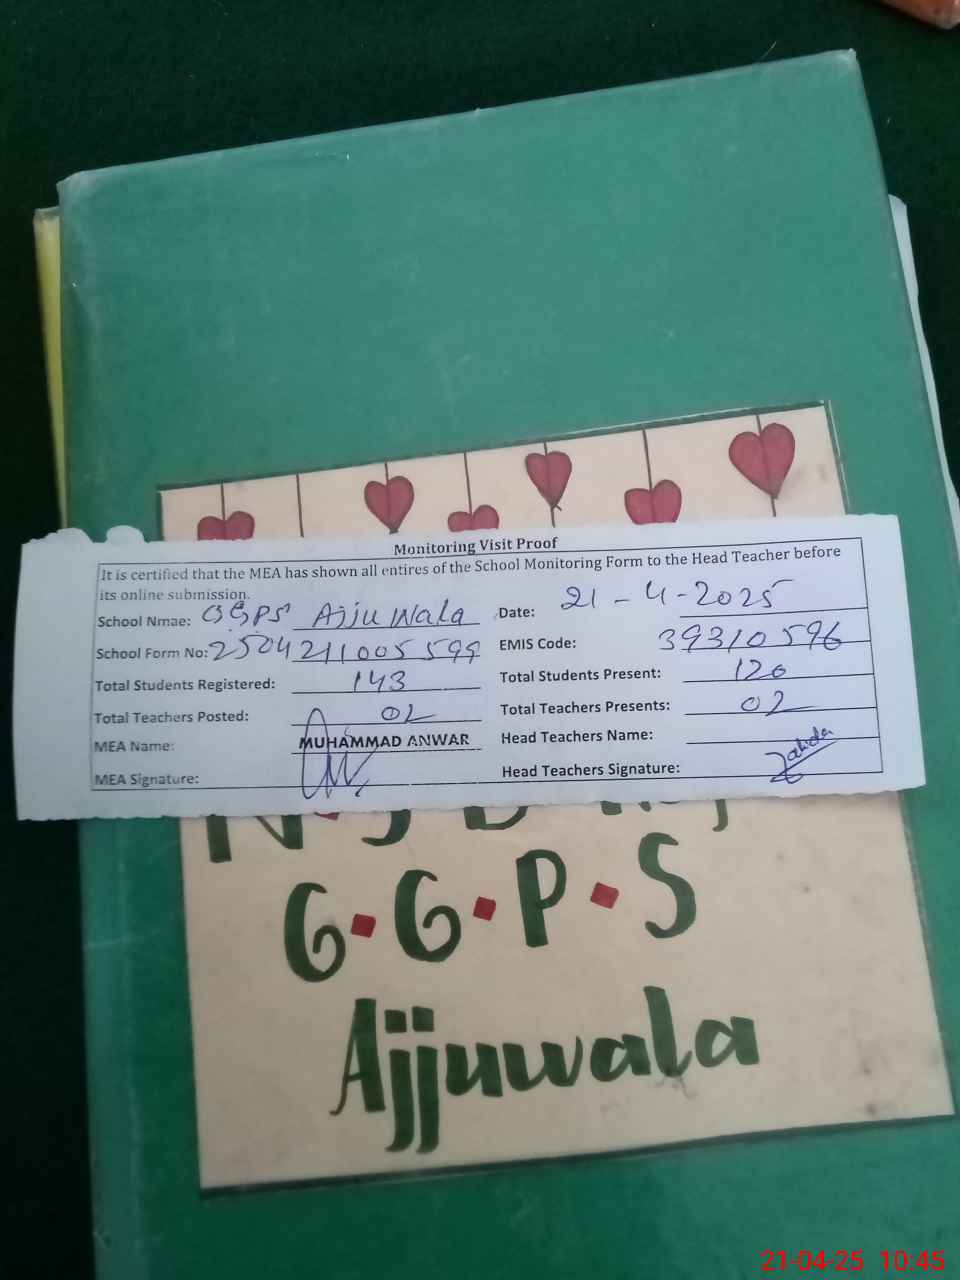 Monitoring Visit Proof
It is certified that the MEA has shown all entires of the School Monitoring Form to the Head Teacher before
its online submission.
School Nmae: GGPS Ajju Wala Date: 21-4-2025
School Form No: 25042111005599 EMIS Code: 39310596
Total Students Registered: 143 Total Students Present: 120
Total Teachers Posted: 02 Total Teachers Presents: 02
MEA Name: MUHAMMAD ANWAR Head Teachers Name:
MEA Signature: Head Teachers Signature: Zahida
G.G.P.S
Ajjuwala
21-04-25 10:45